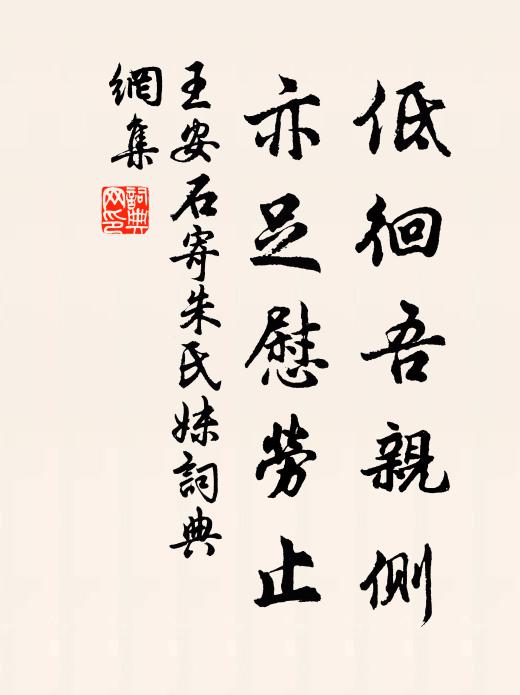 低徊吾親側
亦足慰勞止
王安石寄朱氏妹詞典
網集
詞典
网印